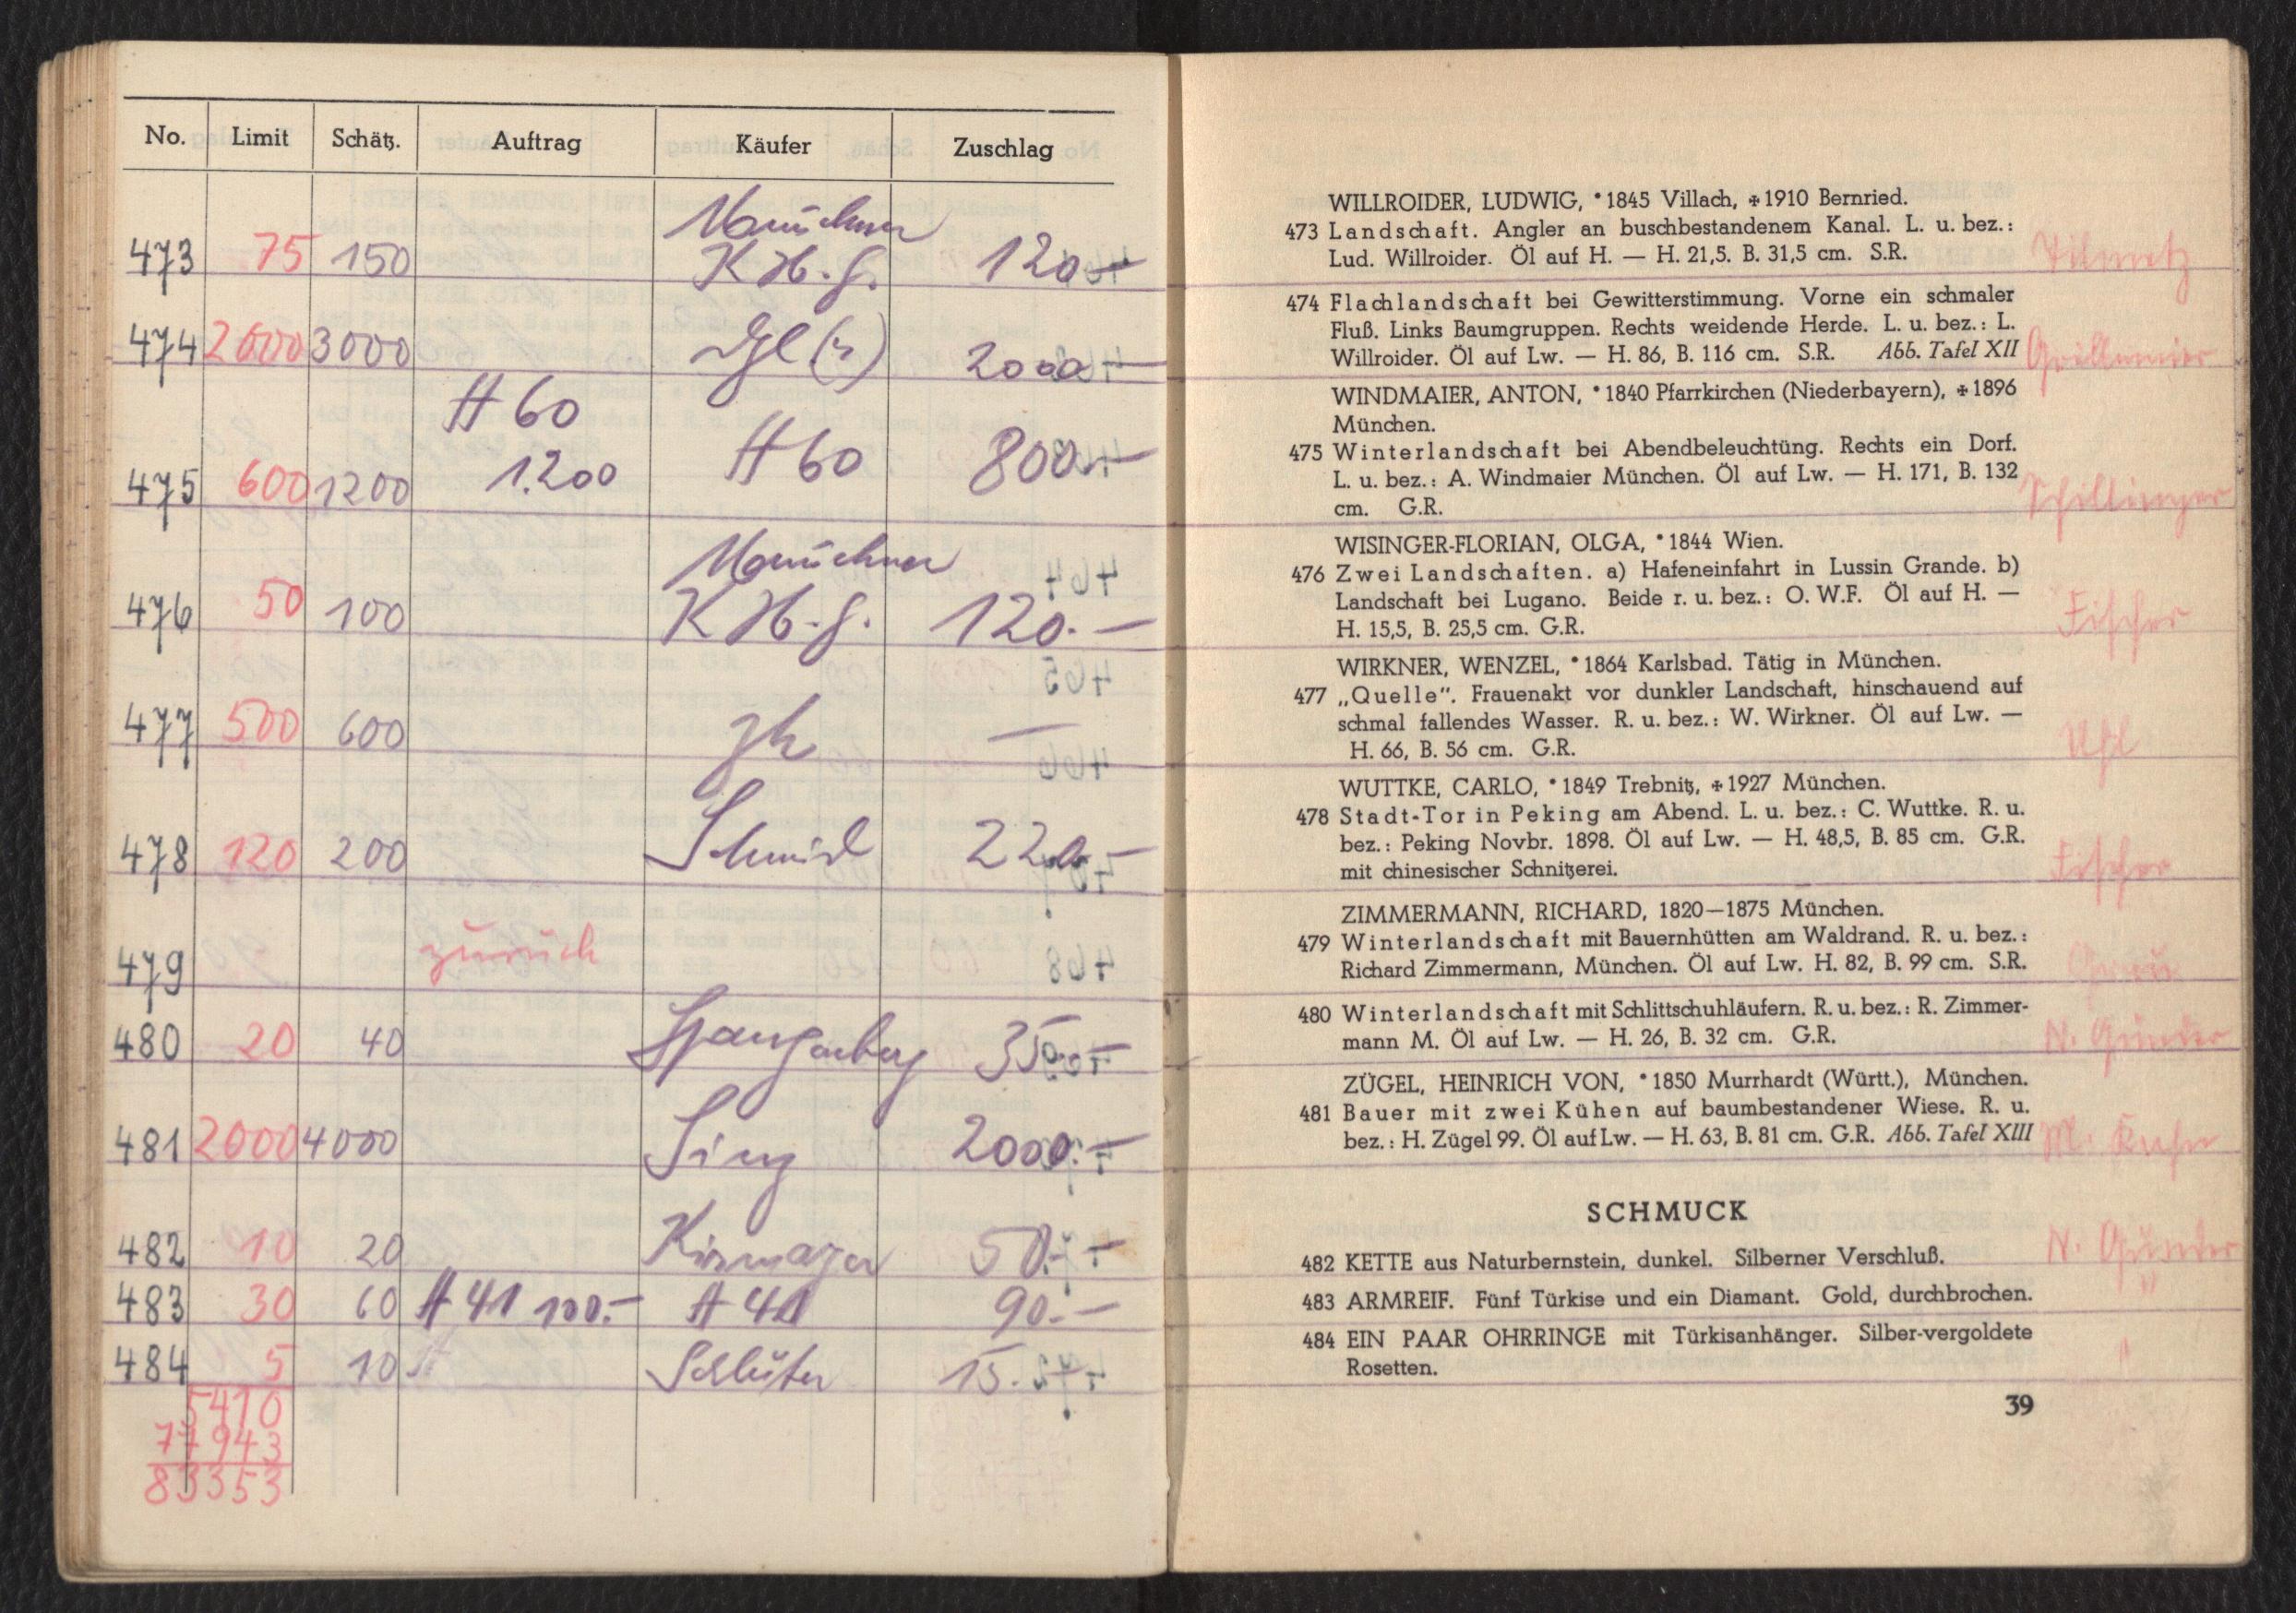 No. Limit Schätz. Auftrag Käufer Zuschlag
473 75 150 Münchner K H. g. 120.—
474 2000 3000 2000.—
475 600 1200 # 60 1.200 # 60 800.—
476 50 100 Münchner K H. g. 120.—
477 500 600 —
478 120 200 Schmid 220.—
479 zurück
480 20 40 Spangenberg 35.—
481 2000 4000 Sing 2000.—
482 10 20 Kirmayer 50.—
483 30 60 # 41 100.— # 41 90.—
484 5 10 Schlüter 15.—
5410
77943
83353
WILLROIDER, LUDWIG, *1845 Villach, ✠1910 Bernried.
473 Landschaft. Angler an buschbestandenem Kanal. L. u. bez.:
Lud. Willroider. Öl auf H. — H. 21,5. B. 31,5 cm. S.R.
474 Flachlandschaft bei Gewitterstimmung. Vorne ein schmaler
Fluß. Links Baumgruppen. Rechts weidende Herde. L. u. bez.: L.
Willroider. Öl auf Lw. — H. 86, B. 116 cm. S.R. Abb. Tafel XII
WINDMAIER, ANTON, *1840 Pfarrkirchen (Niederbayern), ✠1896
München.
475 Winterlandschaft bei Abendbeleuchtüng. Rechts ein Dorf.
L. u. bez.: A. Windmaier München. Öl auf Lw. — H. 171, B. 132
cm. G.R. Schillinger
WISINGER-FLORIAN, OLGA, *1844 Wien.
476 Zwei Landschaften. a) Hafeneinfahrt in Lussin Grande. b)
Landschaft bei Lugano. Beide r. u. bez.: O. W.F. Öl auf H. — Fischer
H. 15,5, B. 25,5 cm. G.R.
WIRKNER, WENZEL, *1864 Karlsbad. Tätig in München.
477 „Quelle". Frauenakt vor dunkler Landschaft, hinschauend auf
schmal fallendes Wasser. R. u. bez.: W. Wirkner. Öl auf Lw. —
H. 66, B. 56 cm. G.R.
WUTTKE, CARLO, *1849 Trebnitz, ✠1927 München.
478 Stadt-Tor in Peking am Abend. L. u. bez.: C. Wuttke. R. u.
bez.: Peking Novbr. 1898. Öl auf Lw. — H. 48,5, B. 85 cm. G.R.
mit chinesischer Schnitzerei. Fischer
ZIMMERMANN, RICHARD, 1820—1875 München.
479 Winterlandschaft mit Bauernhütten am Waldrand. R. u. bez.:
Richard Zimmermann, München. Öl auf Lw. H. 82, B. 99 cm. S.R.
480 Winterlandschaft mit Schlittschuhläufern. R. u. bez.: R. Zimmer-
mann M. Öl auf Lw. — H. 26, B. 32 cm. G.R. N. Günder
ZÜGEL, HEINRICH VON, *1850 Murrhardt (Württ.), München.
481 Bauer mit zwei Kühen auf baumbestandener Wiese. R. u.
bez.: H. Zügel 99. Öl auf Lw. — H. 63, B. 81 cm. G.R. Abb. Tafel XIII
SCHMUCK
482 KETTE aus Naturbernstein, dunkel. Silberner Verschluß. N. Günder
483 ARMREIF. Fünf Türkise und ein Diamant. Gold, durchbrochen. "
484 EIN PAAR OHRRINGE mit Türkisanhänger. Silber-vergoldete "
Rosetten.
39